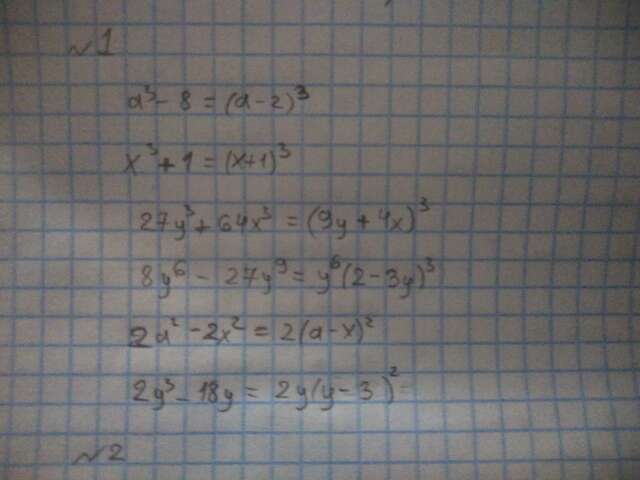 №1
a³ - 8 = (a - 2)³
x³ + 1 = (x+1)³
27y³ + 64x³ = (9y + 4x)³
8y⁶ - 27y⁹ = y⁶(2 - 3y)³
2a² - 2x² = 2(a - x)²
2y³ - 18y = 2y(y - 3)²
№2